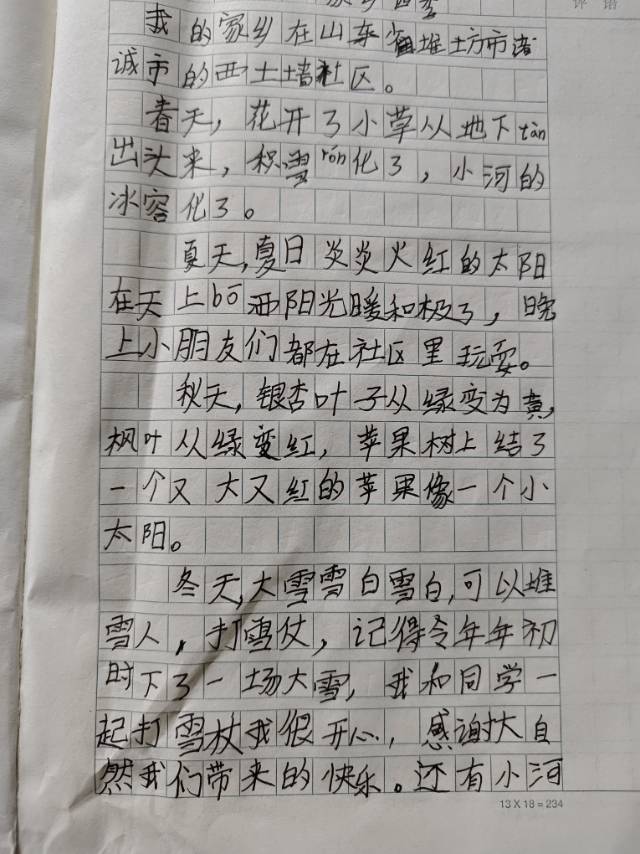 我的家乡在山东省堆坊市诸
诚市的西土墙社区。
春天，花开了小草从地下tàn
出头来，积雪rón化了，小河的
冰容化了。
夏天，夏日炎炎火红的太阳
在天上bō洒阳光暖和极了，晚
上小朋友们都在社区里玩耍。
秋天，银杏叶子从绿变为黄，
枫叶从绿变红，苹果树上结了
一个又大又红的苹果像一个小
太阳。
冬天，大雪雪白雪白，可以堆
雪人，打雪仗，记得今年年初
时下了一场大雪，我和同学一
起打雪杖我很开心，感谢大自
然我们带来的快乐。还有小河
13×18=234
评语